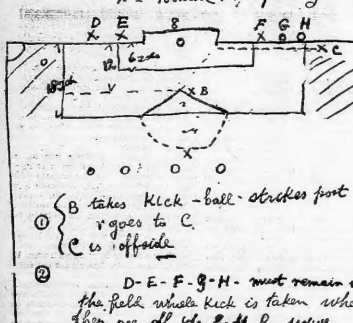 D E 8 F G H
C
12
6 yds
18 yds
B
B takes Kick - ball - strikes post
① & goes to C.
C is offside
②
D - E - F - G - H - must remain
the field while Kick is taken